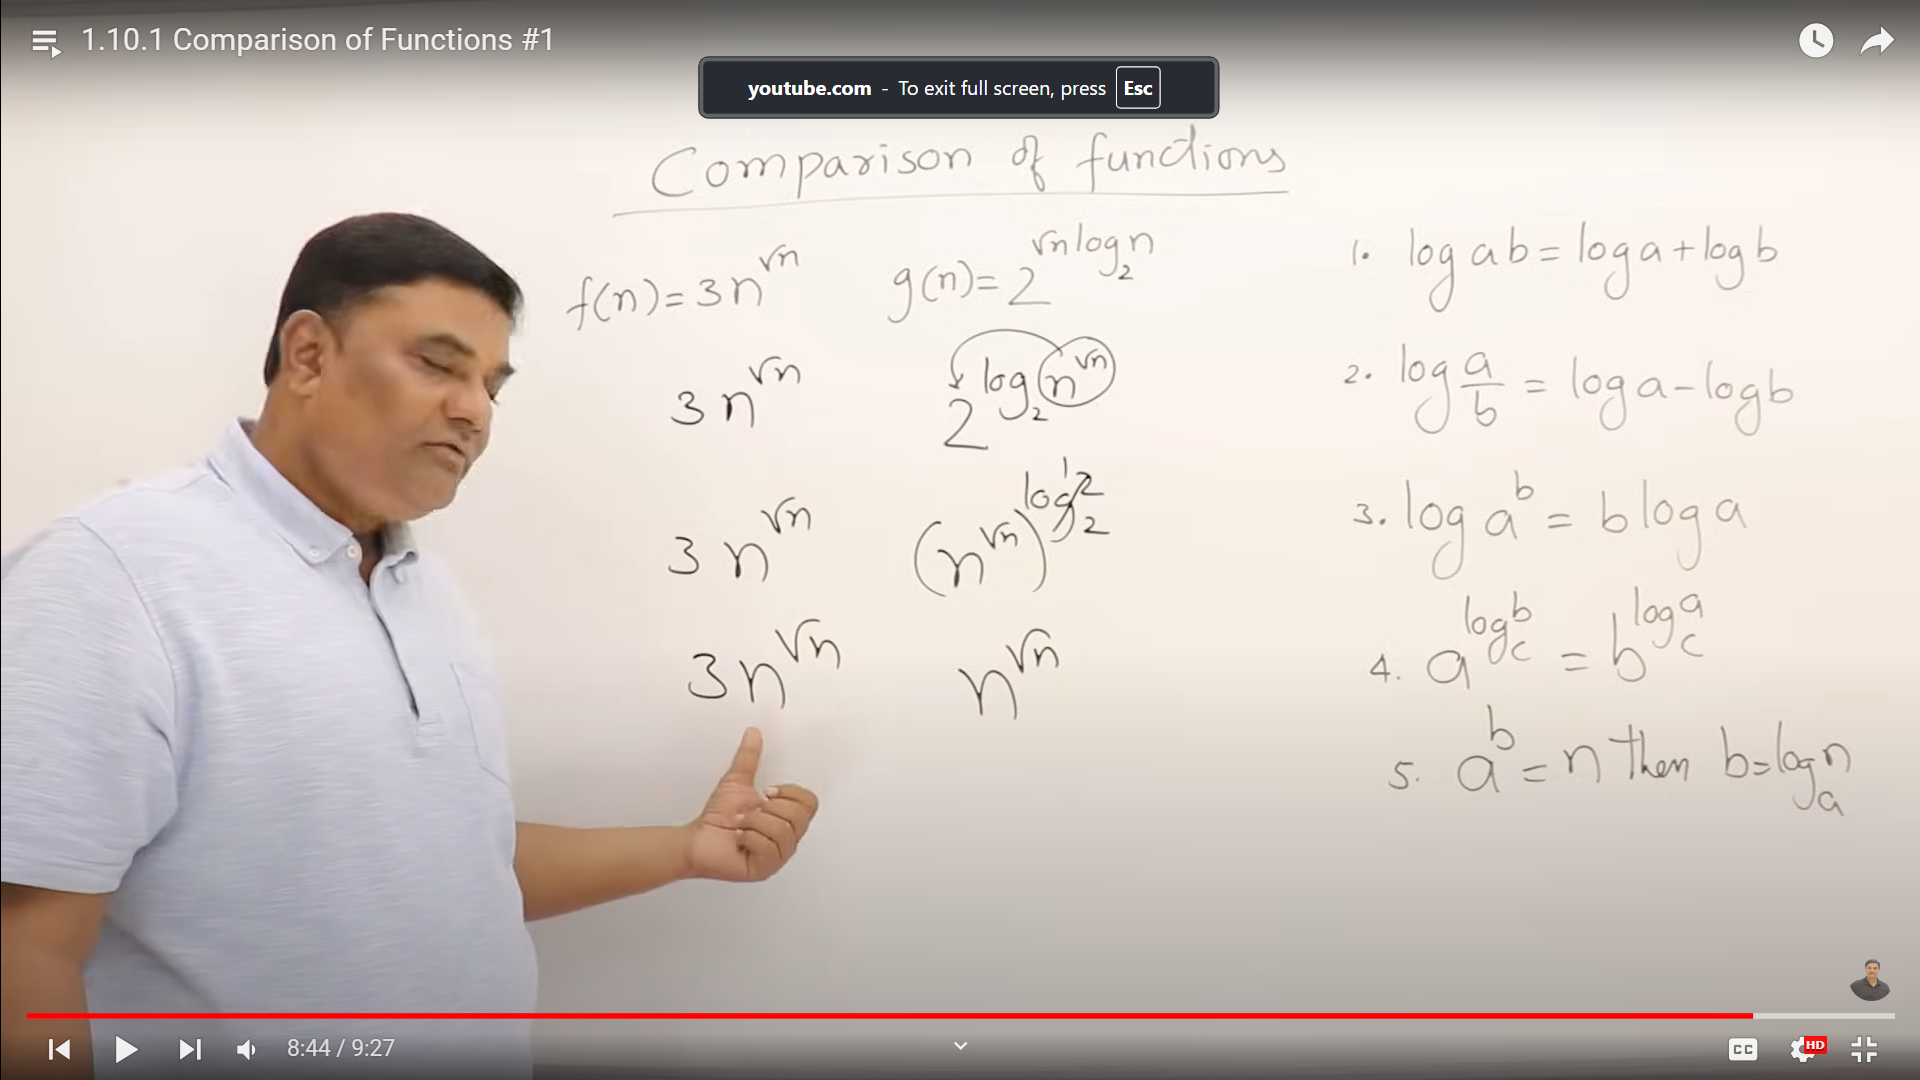 1.10.1 Comparison of Functions #1
youtube.com - To exit full screen, press Esc
Comparison of functions
f(n) = 3n^√n
g(n) = 2^(√n log₂ n)
3n^√n
2^(log₂ n^√n)
3n^√n
(n^√n)^(log₂ 2) 1
3n^√n
n^√n
1. log ab = log a + log b
2. log a/b = log a - log b
3. log a^b = b log a
4. a^(log_c b) = b^(log_c a)
5. a^b = n then b = log_a n
8:44 / 9:27
CC
HD